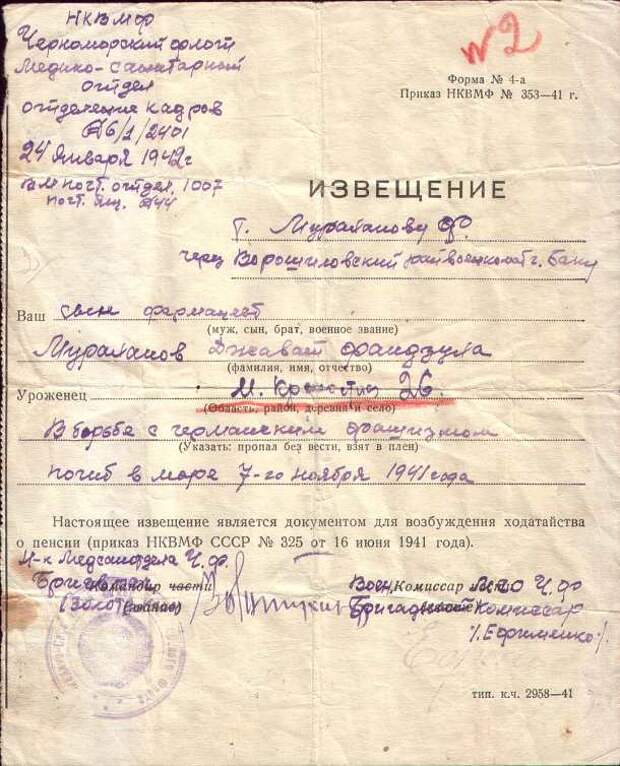 НКВМФ
Черноморский флот
Медико-санитарный
отдел
отделение кадров
№ 2
Форма № 4-а
Приказ НКВМФ № 353—41 г.
6/1/2401
24 января 1942 г
почт. отдел. 1007
почт. ящ. 44
ИЗВЕЩЕНИЕ
т. Муратанову Ф.
через Ворошиловский райвоенкомат г. Баку
Ваш сын фармацевт
(муж, сын, брат, военное звание)
Муратанов Джават
(фамилия, имя, отчество)
Уроженец 26
(Область, район, деревня и село)
В борьбе с германским фашизмом
(Указать: пропал без вести, взят в плен)
погиб в море 7-го ноября 1941 года
Настоящее извещение является документом для возбуждения ходатайства
о пенсии (приказ НКВМФ СССР № 325 от 16 июня 1941 года).
Н-к Медсанотдела Ч.Ф.
Командир части
(звание)
Воен. Комиссар МСО Ч.Ф
Бригадный Комиссар
/Ефименко/.
тип. к.ч. 2958—41